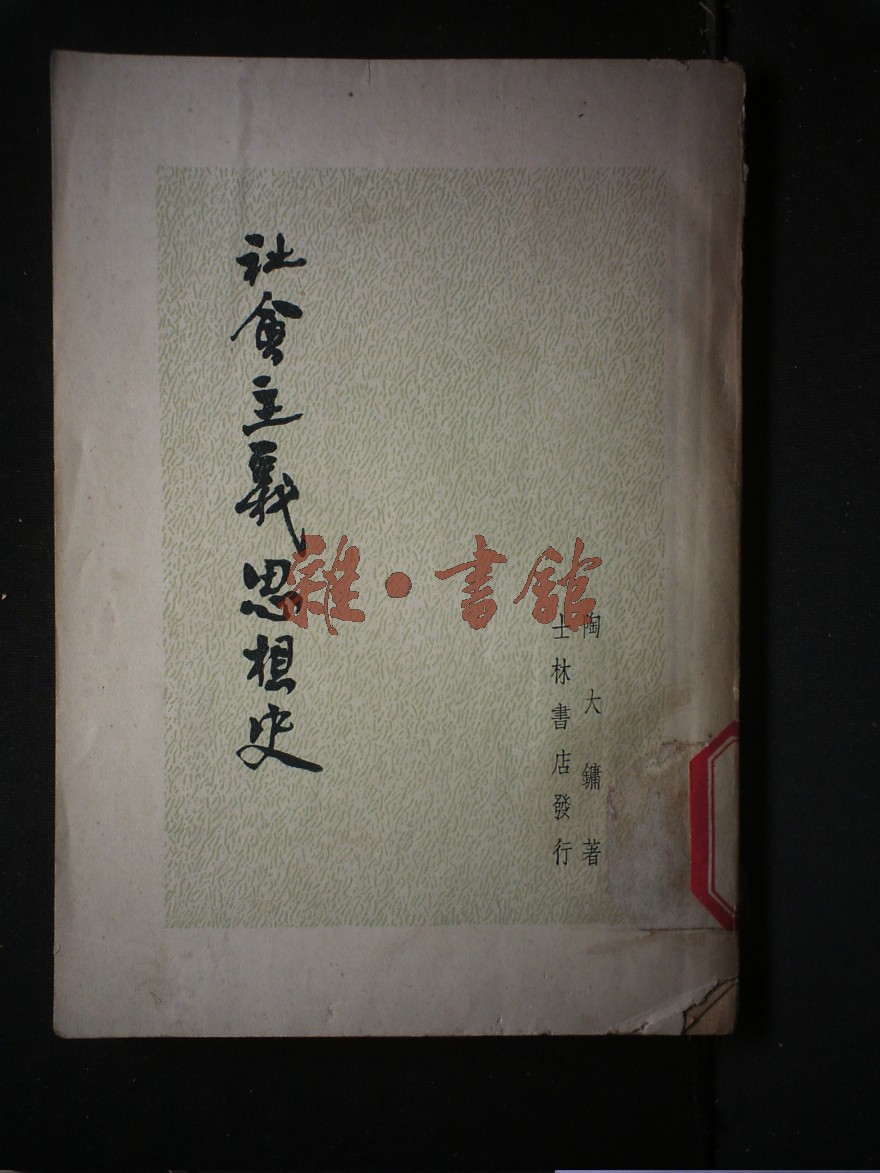 社會主義思想史
雜·書館
陶大鏞著
士林書店發行